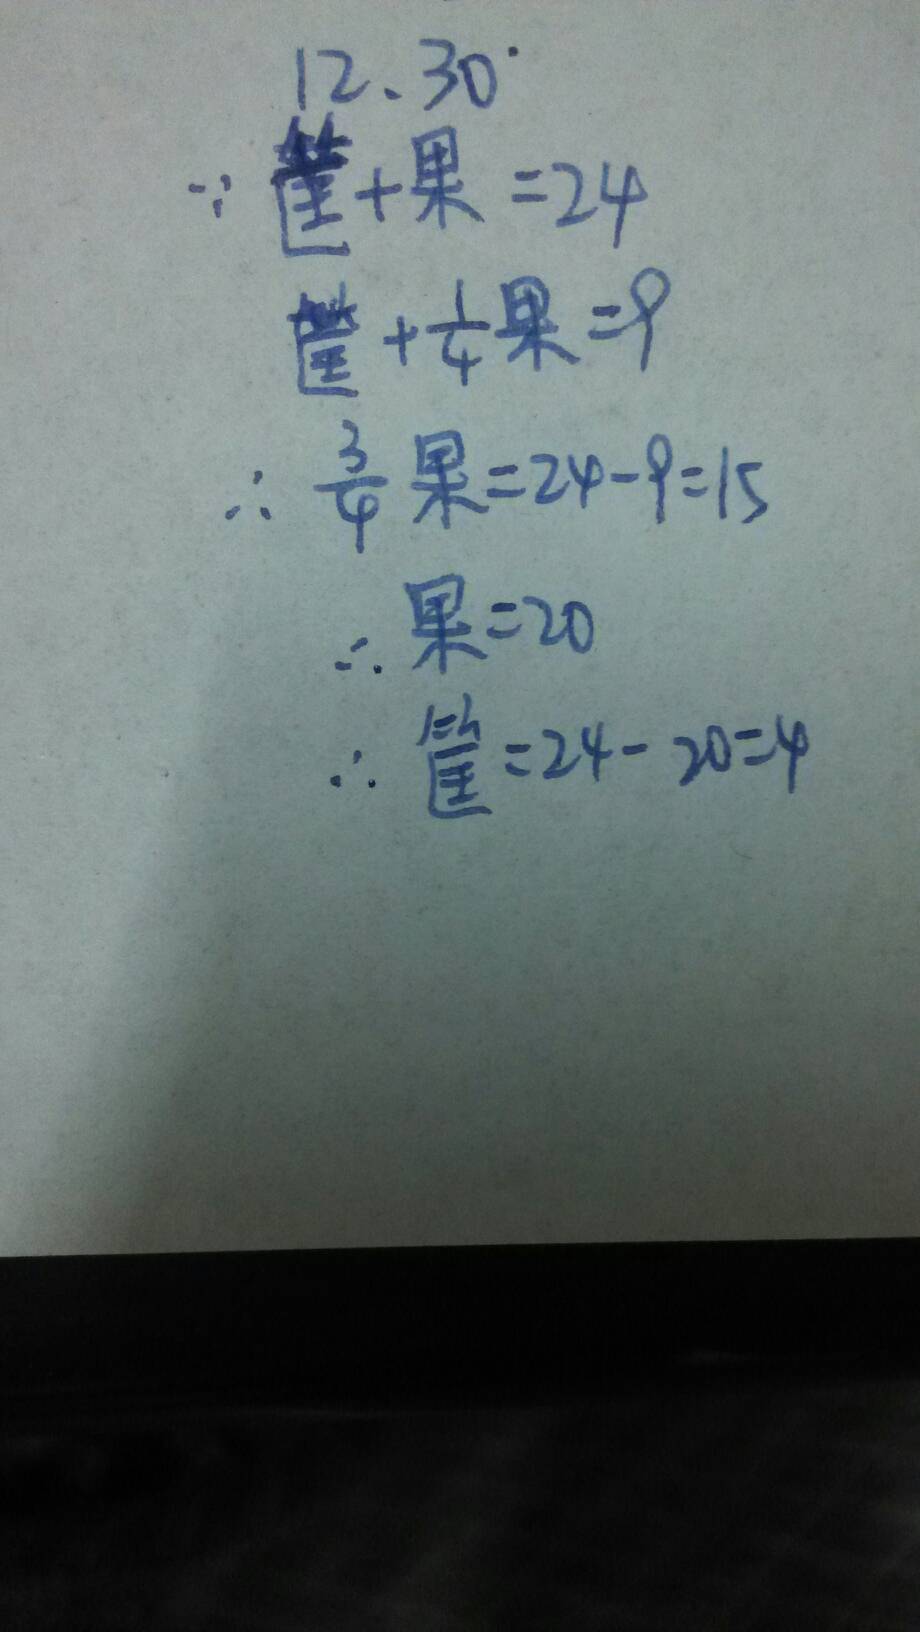 12、30
∵ 筐+果=24
筐+1/4果=9
∴ 3/4果=24-9=15
∴ 果=20
∴ 筐=24-20=4